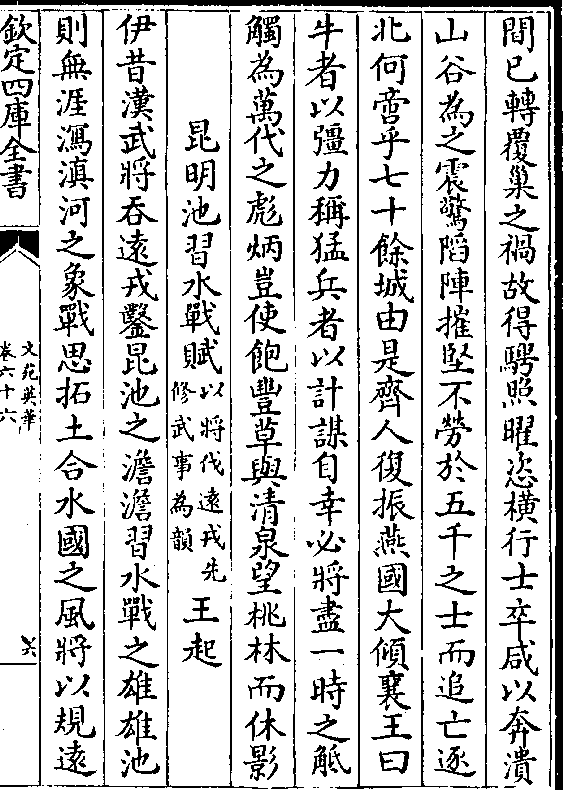 間已轉覆巢之禍故得騁照曜恣橫行士卒咸以奔潰
山谷為之震驚䧟陣摧堅不勞於五千之士而追亡逐
北何啻乎七十餘城由是齊人復振燕國大傾襄王曰
牛者以彊力稱猛兵者以計謀自幸必將盡一時之觝
觸為萬代之彪炳豈使飽豐草與清泉望桃林而休影
昆明池習水戰賦以將伐遠戎先修武事為韻王起
伊昔漢武將吞遠戎鑿昆池之澹澹習水戰之雄雄池
則無涯瀉滇河之象戰思拓土合水國之風將以規遠
欽定四庫全書
文苑英華
卷六十六
六